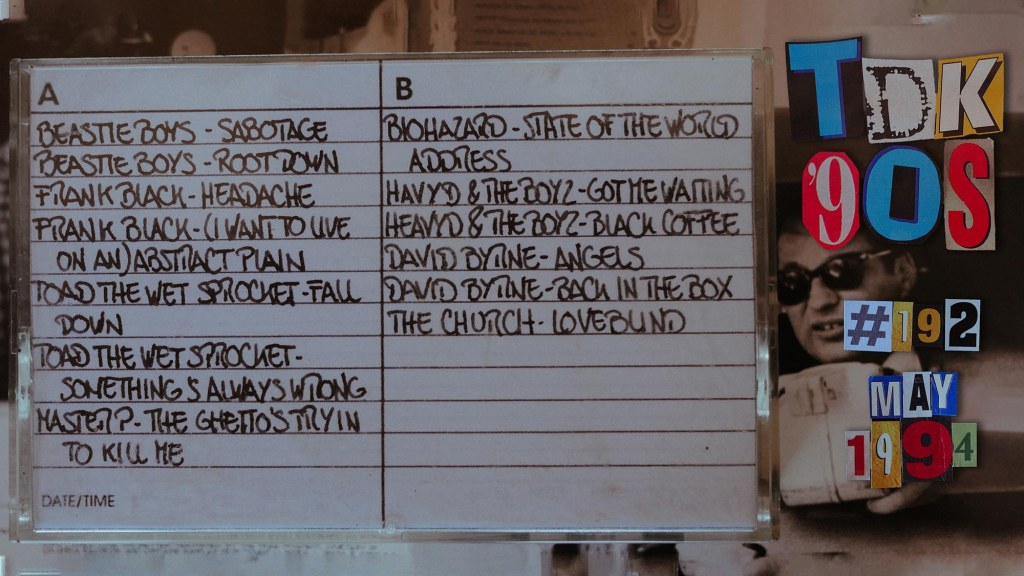 A
BEASTIE BOYS - SABOTAGE
BEASTIE BOYS - ROOT DOWN
FRANK BLACK - HEADACHE
FRANK BLACK - (I WANT TO LIVE
ON AN) ABSTRACT PLAIN
TOAD THE WET SPROCKET - FALL
DOWN
TOAD THE WET SPROCKET -
SOMETHING'S ALWAYS WRONG
MASTER P. - THE GHETTO'S TRYIN
TO KILL ME
DATE/TIME
B
BIOHAZARD - STATE OF THE WORLD
ADDRESS
HAVY D & THE BOYZ - GOT ME WAITING
HEAVY D & THE BOYZ - BLACK COFFEE
DAVID BYRNE - ANGELS
DAVID BYRNE - BACK IN THE BOX
THE CHURCH - LOVEBLIND
TDK
'90S
#192
MAY
1994